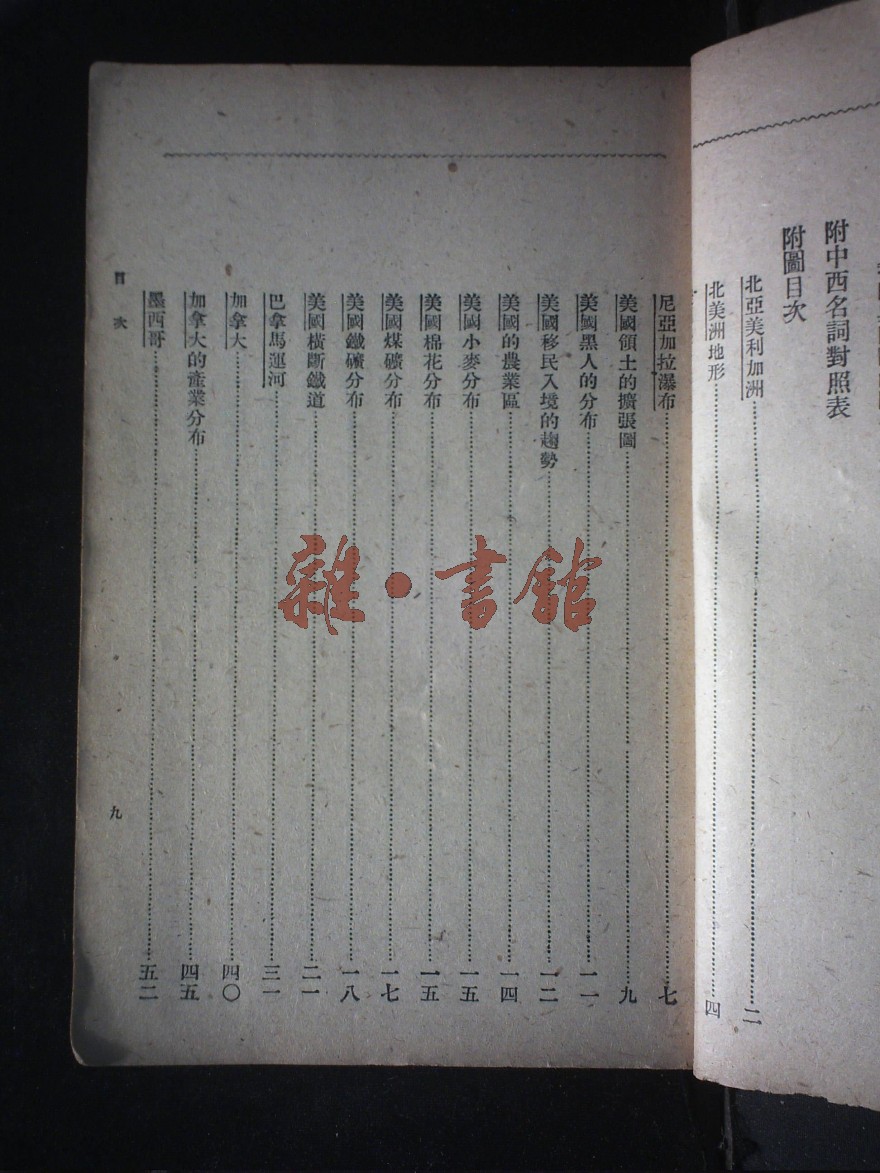 附中西名詞對照表
附圖目次
北亞美利加洲……二
北美洲地形……四
尼亞加拉瀑布……七
美國領土的擴張圖……九
美國黑人的分布……一一
美國移民入境的趨勢……一二
美國的農業區……一四
美國小麥分布……一五
美國棉花分布……一五
美國煤礦分布……一七
美國鐵礦分布……一八
美國橫斷鐵道……二一
巴拿馬運河……三一
加拿大……四〇
加拿大的產業分布……四五
墨西哥……五二
目次
九
雜·書館